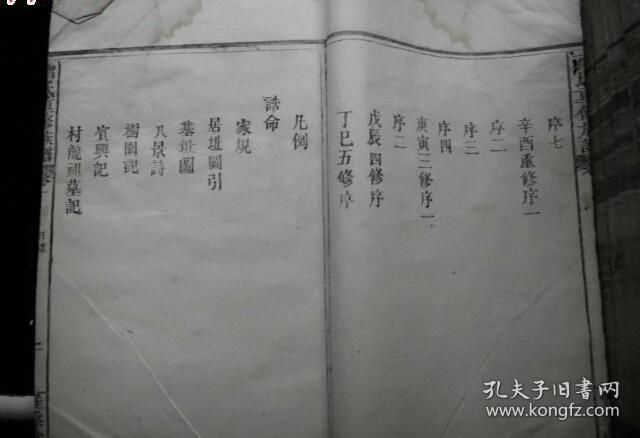 序七
辛酉重修序一
序二
序四
庚寅三修序一
序二
戊辰四修序
丁巳五修序
凡例
誥命
家規
居址圖引
基址圖
八景詩
樹園記
賓興記
村龍祖墓記
目錄
二
孔夫子旧書网
www.kongfz.com